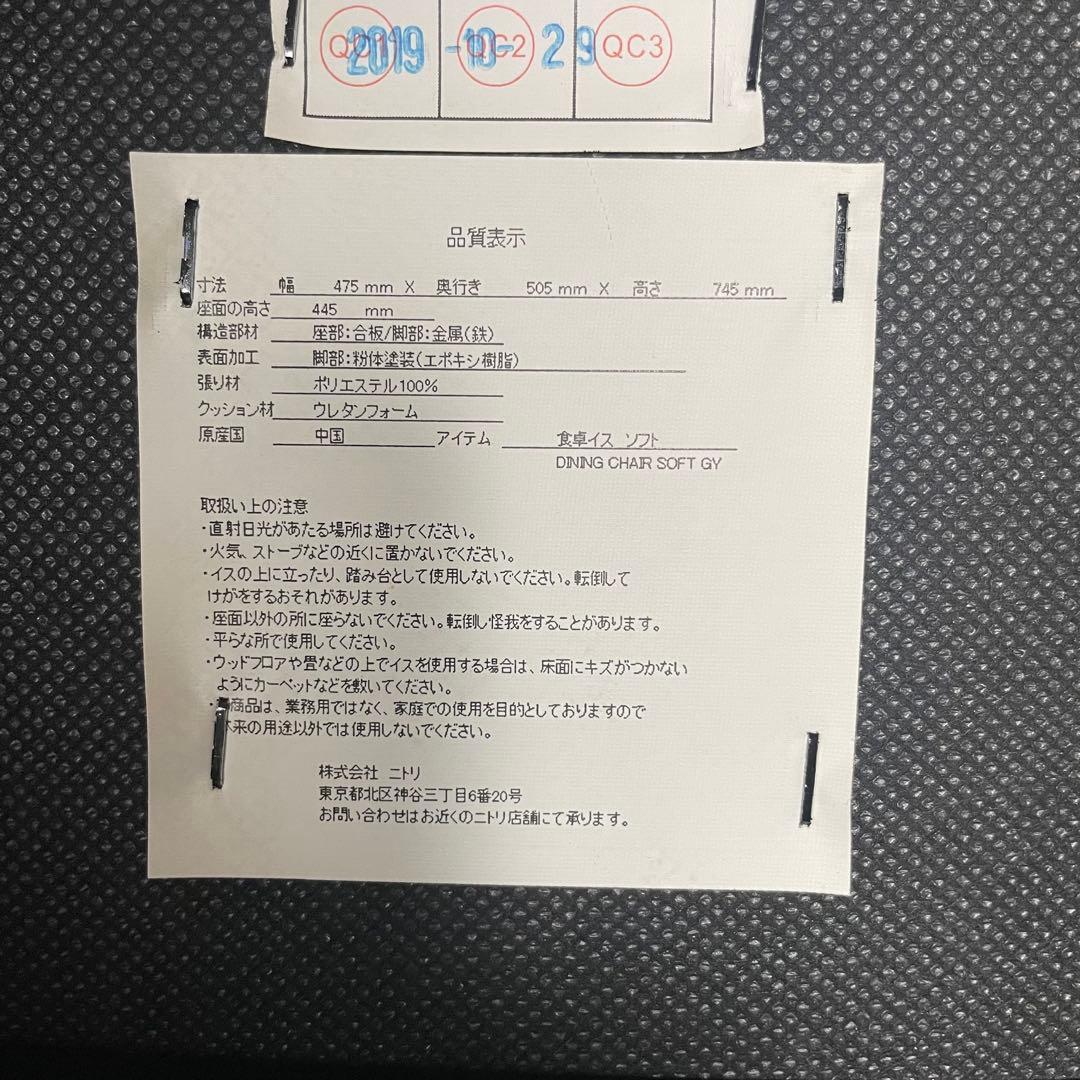 2019-10-29
QC2 QC3
品質表示
寸法 幅 475 mm X 奥行き 505 mm X 高さ 745 mm
座面の高さ 445 mm
構造部材 座部:合板/脚部:金属(鉄)
表面加工 脚部:粉体塗装(エポキシ樹脂)
張り材 ポリエステル100%
クッション材 ウレタンフォーム
原産国 中国 アイテム 食卓イス ソフト
DINING CHAIR SOFT GY
取扱い上の注意
・直射日光があたる場所は避けてください。
・火気、ストーブなどの近くに置かないでください。
・イスの上に立ったり、踏み台として使用しないでください。転倒して
けがをするおそれがあります。
・座面以外の所に座らないでください。転倒し怪我をすることがあります。
・平らな所で使用してください。
・ウッドフロアや畳などの上でイスを使用する場合は、床面にキズがつかない
ようにカーペットなどを敷いてください。
・商品は、業務用ではなく、家庭での使用を目的としておりますので
本来の用途以外では使用しないでください。
株式会社 ニトリ
東京都北区神谷三丁目6番20号
お問い合わせはお近くのニトリ店舗にて承ります。